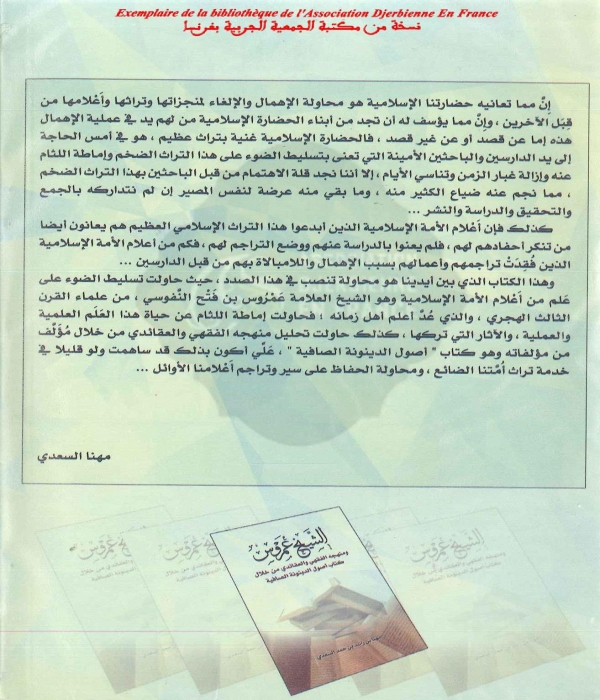 Exemplaire de la bibliothèque de l'Association Djerbienne En France
نسخة من مكتبة الجمعية الجربية بفرنسا
إنّ مما تعانيه حضارتنا الإسلامية هو محاولة الإهمال والإلغاء لمنجزاتها وتراثها وأعْلامها من
قِبَل الآخرين ، وإنّ مما يؤسف له أن تجد من أبناء الحضارة الإسلامية من لهم يد في عملية الإهمال
هذه إما عن قصد أو عن غير قصد ، فالحضارة الإسلامية غنية بتراث عظيم ، هو في أمس الحاجة
إلى يد الدارسين والباحثين الأمينة التي تعنى بتسليط الضوء على هذا التراث الضخم وإماطة اللثام
عنه وإزالة غبار الزمن وتناسي الأيام ، إلا أننا نجد قلة الاهتمام من قبل الباحثين بهذا التراث الضخم
، مما نجم عنه ضياع الكثير منه ، وما بقي منه عرضة لنفس المصير إن لم نتداركه بالجمع
والتحقيق والدراسة والنشر ...
كذلك فإن أعْلام الأمة الإسلامية الذين أبدعوا هذا التراث الإسلامي العظيم هم يعانون أيضا
من تنكر أحفادهم لهم ، فلم يعنوا بالدراسة عنهم ووضع التراجم لهم ، فكم من أعلام الأمة الإسلامية
الذين فُقِدَتْ تراجمهم وأعمالهم بسبب الإهمال واللامبالاة بهم من قبل الدارسين ...
وهذا الكتاب الذي بين أيدينا هو محاولة تنصب في هذا الصدد ، حيث حاولت تسليط الضوء على
عَلم من أعْلام الأمة الإسلامية وهو الشيخ العلامة عَمْروس بن فَتْح النَّفوسي ، من علماء القرن
الثالث الهجري ، والذي عُدّ أعلم أهل زمانه ؛ فحاولت إماطة اللثام عن حياة هذا العَلَم العلمية
والعملية ، والآثار التي تركها ، كذلك حاولت تحليل منهجه الفقهي والعقائدي من خلال مُؤلَّف
من مؤلفاته وهو كتاب " أصول الدينونة الصافية " ، عَلّي أكون بذلك قد ساهمت ولو قليلا في
خدمة تراث أمّتنا الضائع ، ومحاولة الحفاظ على سير وتراجم أعْلامنا الأوائل ...
مهنا السعدي
الشيخ عمروس
ومنهجه الفقهي والعقائدي من خلال
كتاب أصول الدينونة الصافية
مهنا بن راشد بن حمد السعدي